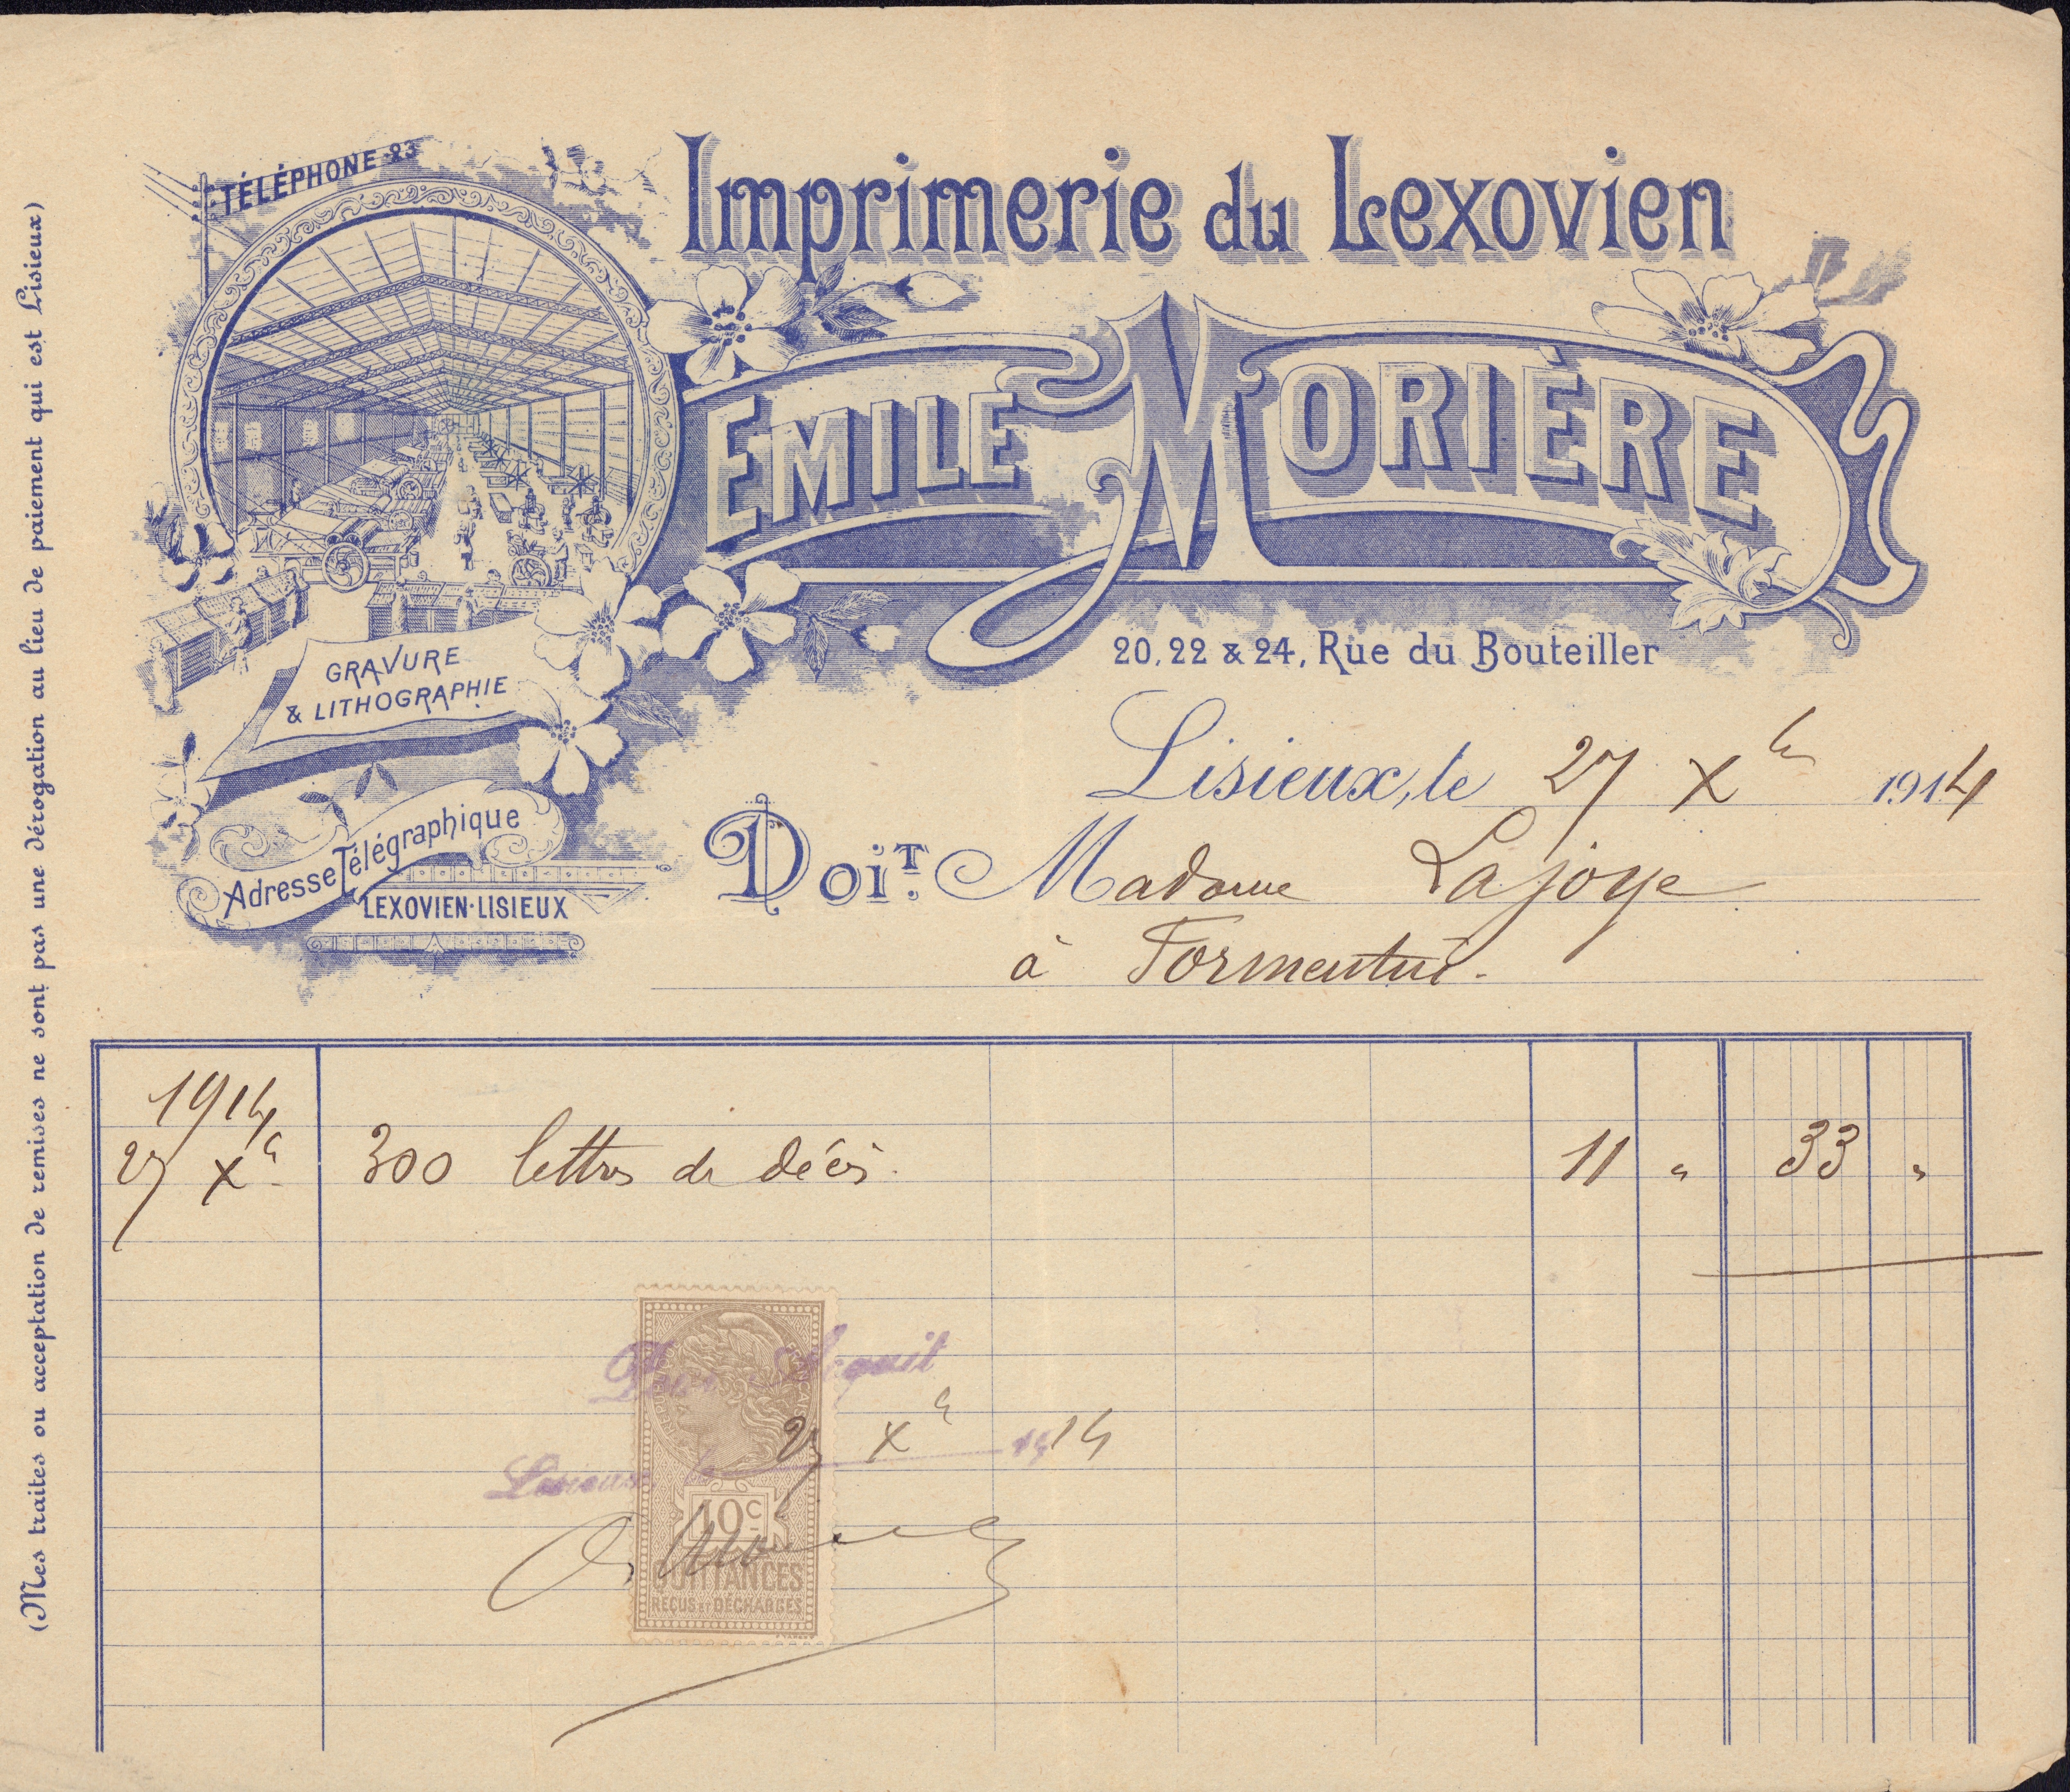 TÉLÉPHONE 23
Imprimerie du Lexovien
EMILE MORIÈRE
20, 22 & 24, Rue du Bouteiller
GRAVURE
& LITHOGRAPHIE
Adresse Télégraphique
LEXOVIEN-LISIEUX
Lisieux, le 27 Xbre 1914
DOIT. Madame Lajoye
à Formentin.
(Mes traites ou acceptation de remises ne sont pas une dérogation au lieu de paiement qui est Lisieux)
1914
27 Xbre 300 lettres de décès. 11 " 33 "
Pour Acquit
Lisieux le 27 Xbre 1914
10c
QUITTANCES
REÇUS ET DÉCHARGES